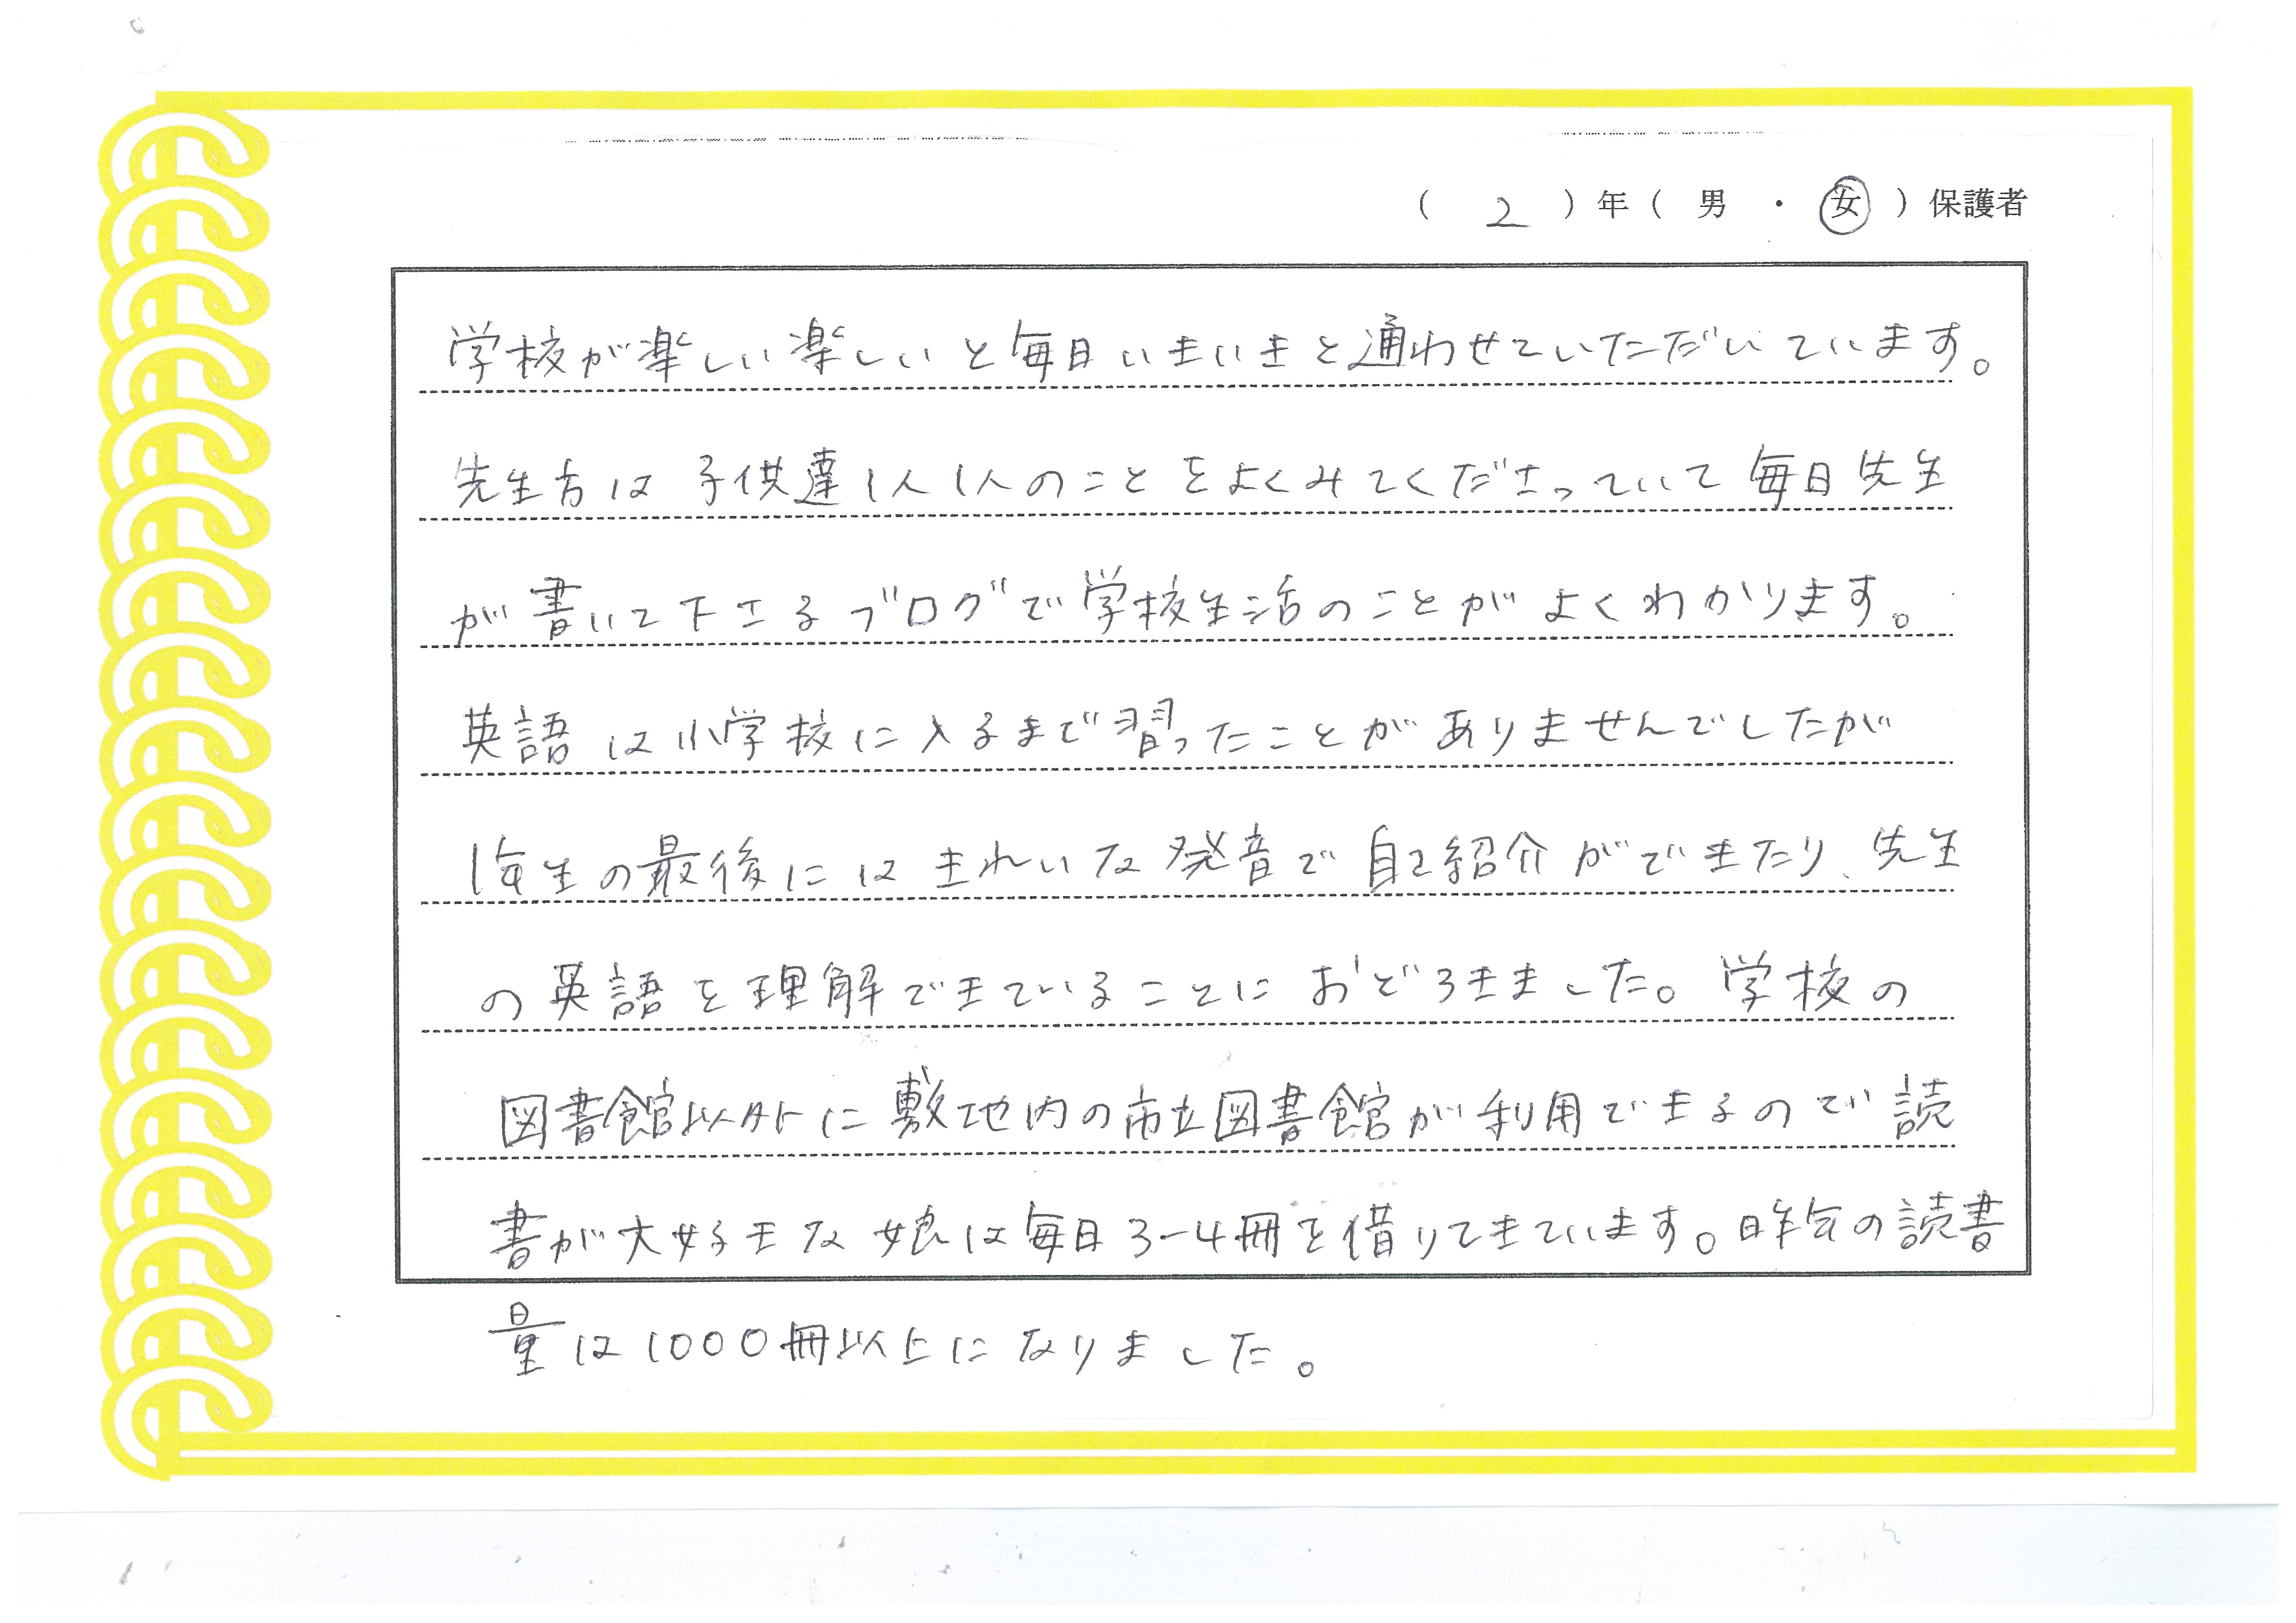 ( 2 ) 年 ( 男 ・ 女 ) 保護者
学校が楽しい楽しいと毎日いきいきと通わせていただいています。
先生方は子供達1人1人のことをよくみてくださっていて毎日先生
が書いて下さるブログで学校生活のことがよくわかります。
英語は小学校に入るまで習ったことがありませんでしたが
1年生の最後にはきれいな発音で自己紹介ができたり、先生
の英語を理解できていることにおどろきました。学校の
図書館以外に敷地内の市立図書館が利用できるので読
書が大好きな娘は毎日3-4冊を借りてきています。昨年の読書
量は1000冊以上になりました。